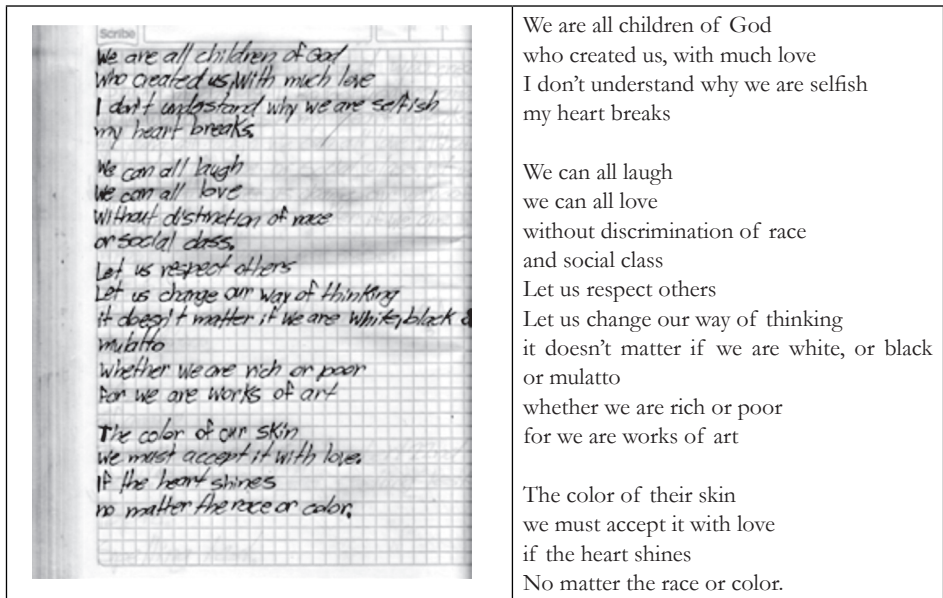 Scribe
We are all children of God
who created us, with much love
I don't understand why we are selfish
my heart breaks.
We can all laugh
We can all love
without distinction of race
or social class.
Let us respect others
Let us change our way of thinking
it doesn't matter if we are white, black
mulatto
whether we are rich or poor
for we are works of art
The color of our skin
we must accept it with love.
If the heart shines
no matter the race or color.
We are all children of God
who created us, with much love
I don't understand why we are selfish
my heart breaks
We can all laugh
we can all love
without discrimination of race
and social class
Let us respect others
Let us change our way of thinking
it doesn't matter if we are white, or black
or mulatto
whether we are rich or poor
for we are works of art
The color of their skin
we must accept it with love
if the heart shines
No matter the race or color.